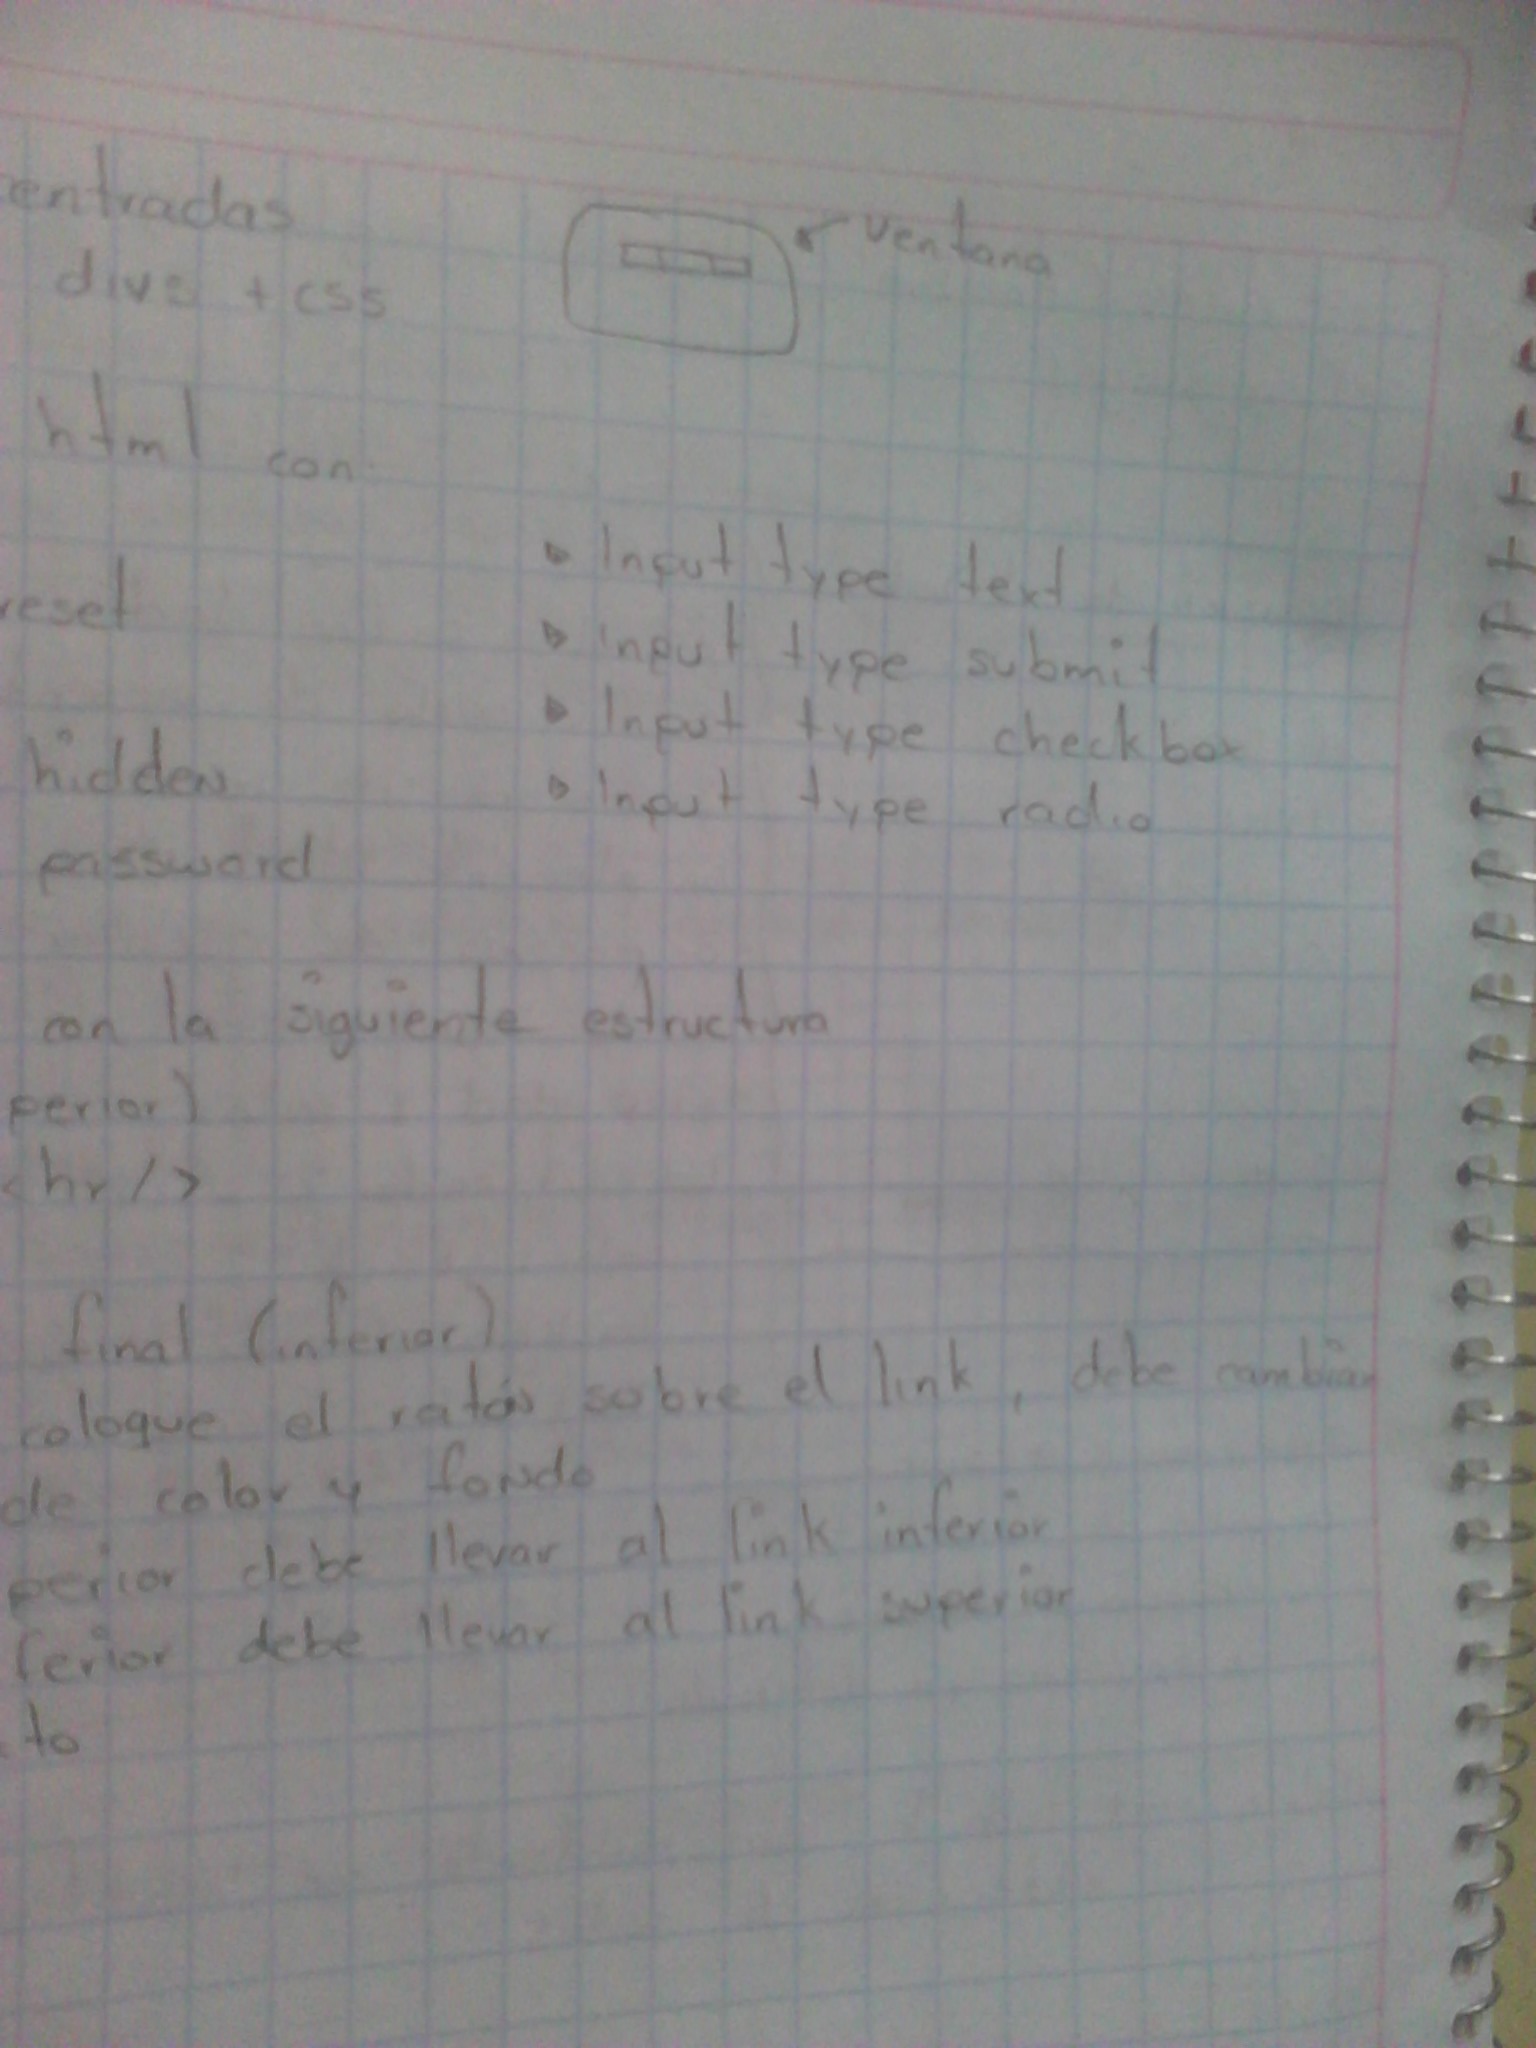 entradas
ventana
divs + css
html con
reset
hidden
password
Input type text
input type submit
Input type checkbox
Input type radio
con la siguiente estructura
perior)
<hr/>
final (inferior)
coloque el ratón sobre el link, debe cambiar
de color y fondo
perior debe llevar al link inferior
ferior debe llevar al link superior
to